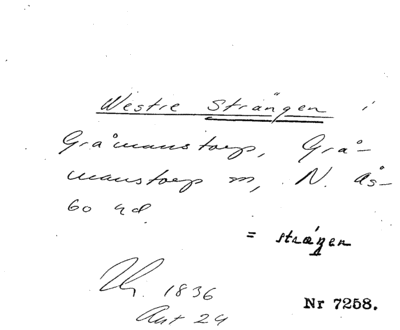 Westre Strängen i
Gråmanstorp, Grå-
manstorp sn, N. Ås-
bo hd.
= strægen
Th. 1836
Akt 24
Nr 7258.